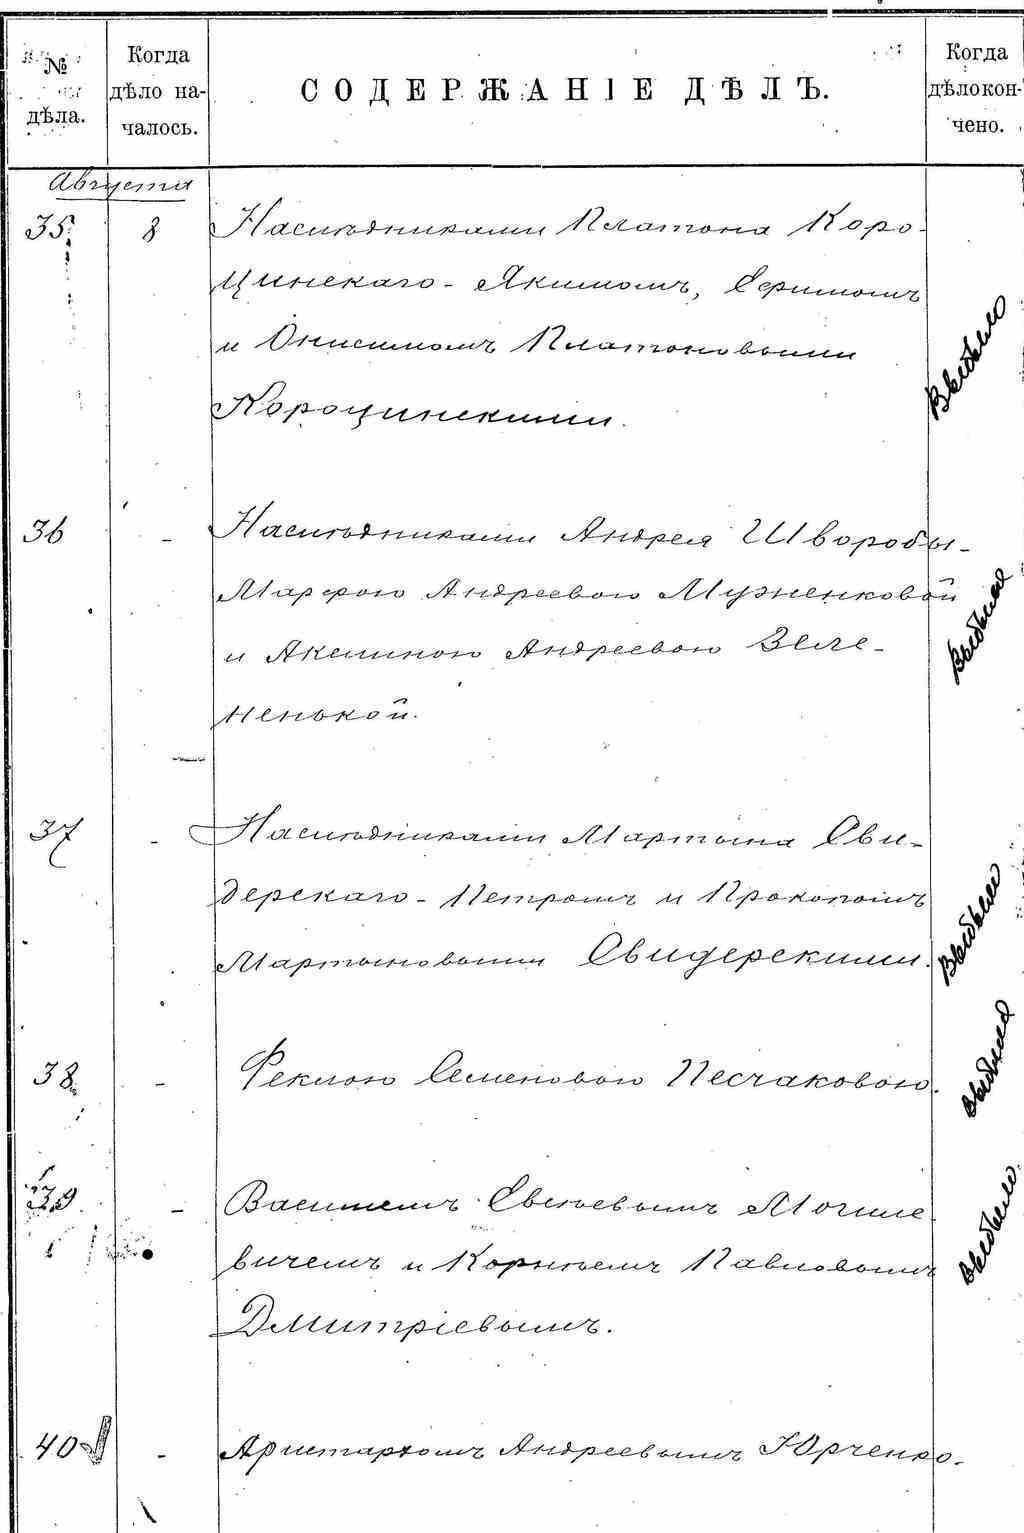 №
дѣла.
Когда
дѣло на-
чалось.
СОДЕРЖАНІЕ ДѢЛЪ.
Когда
дѣло кон-
чено.
Августа
35 8 Наслѣдниками Платона Коро-
цинскаго - Якимомъ, Ефимомъ
и Онисимомъ Платоновыми
Короцинскими.
Выбыло
36 - Наслѣдниками Андрея Шворобы -
Марфою Андреевою Муженковой
и Акилиною Андреевою Зеле-
ненькой.
Выбыло
37 - Наслѣдниками Мартына Сви-
дерскаго - Петромъ и Прокопомъ
Мартыновыми Свидерскими.
Выбыло
38 - Феклою Семеновою Песчаковою.
выбыла
39 - Василіемъ Могиле
вичемъ и Корнѣемъ Павловымъ
Дмитріевымъ.
выбыло
40 - Аристархомъ Андреевымъ Юрченко.